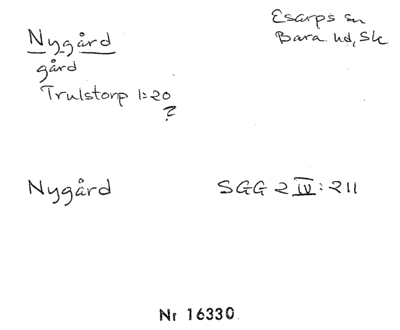 Nygård
gård
Trulstorp 1:20
?
Esarps sn
Bara hd, Sk
Nygård
SGG 2 IV: 211
Nr 16330